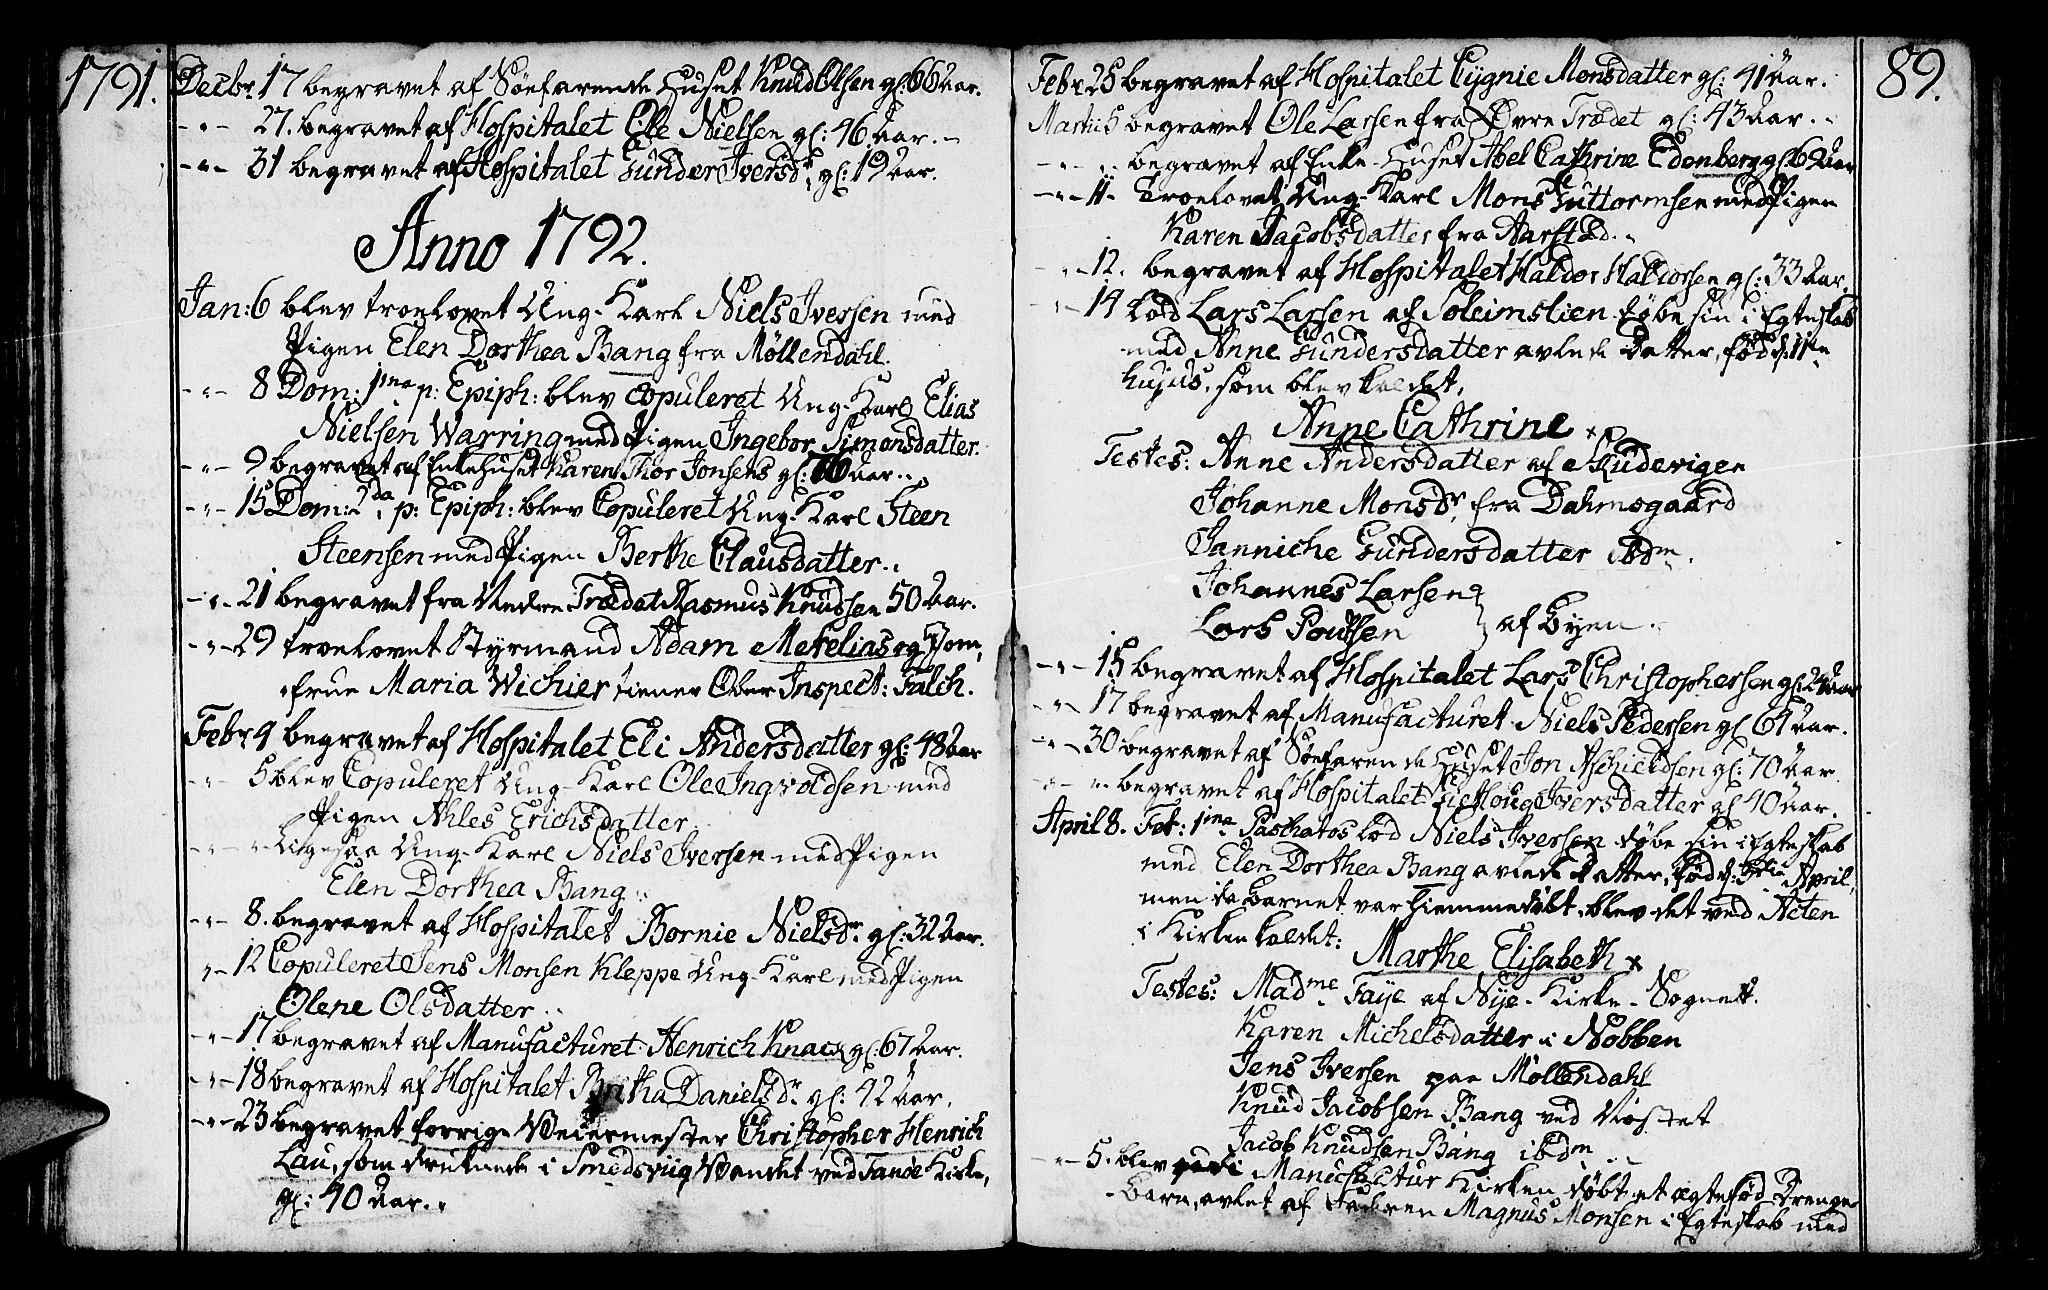 1791.
Decbr. 17 begravet af Söefarende Huset Knud Olsen gl. 66 Aar.
-"- 27. begravet af Hospitalet Ele Nielsen gl: 46 Aar.
-"- 31 begravet af Hospitalet Gunder Iversdr. gl: 19 Aar.
Anno 1792.
Jan: 6 blev troelovet Ung-Karl Niels Iversen med
Pigen Elen Dorthea Bang fra Möllendahl.
-"- 8 Dom: 1ma p: Epiph: blev Copuleret Ung-Karl Elias
Nielsen Warring med Pigen Ingebor Simonsdatter.
-"- 9 begravet af Enkehuset Karen Thor Jonsens gl: 76 Aar.
-"- 15 Dom: 2da p: Epiph: blev Copuleret Ung-Karl Steen
Steensen med Pigen Berthe Clausdatter.
-"- 21 begravet fra Nedre Trædet Rasmus Knudsen 50 Aar.
-"- 29 troelovet Styrmand Adam Metelias og Jom,
frue Maria Wichier tiener Ober Inspect: Falch.
Febr 4 begravet af Hospitalet Eli Andersdatter gl: 48 Aar
-"- 5 blev Copuleret Ung-Karl Ole Ingvoldsen med
Pigen Ahles Erichsdatter
-"- "- Ligesaa Ung-Karl Niels Iversen med Pigen
Elen Dorthea Bang
-"- 8. begravet af Hospitalet Bornie Nielsdr. gl: 32 Aar.
"- 12 Copuleret Jens Monsen Kleppe Ung-Karl med Pigen
Olene Olsdatter
-"- 17 begravet af Manufacturet Henrich Knack gl: 67 Aar.
-"- 18 begravet af Hospitalet Britha Danielsdr. gl: 42 Aar.
-"- 23 begravet forrige Veiermester Christopher Henrich
Lau, som druknede i Smedsviig Vandet ved Fanöe Kirke,
gl: 40 Aar.
89.
Febr 25 begravet af Hospitalet Cygnie Monsdatter gl: 41 Aar.
Martii 5 begravet Ole Larsen fra Övre Trædet gl: 43 Aar.
-"- "- begravet af Enke-Huset Abel Cathrine Edenberg gl. 62 Aar
-"- 11- Troelovet Ung-Karl Mons Guttormsen med Pigen
Karen Jacobsdatter fra Aarstad.
-"- 12. begravet af Hospitalet Haldor Haldorsen gl: 33 Aar.
-"- 14 Lod Lars Larsen af Soleimslien döbe sin i Egteskab
med Anne Gundersdatter avlede Datter, föd d: 11te
hujus, som blev kaldet,
Anne Cathrine x
Testes: Anne Andersdatter af Skudevigen
Johanne Monsdr. fra Dahmsgaard
Janniche Gundersdatter ibdm.
Johannes Larsen
Lars Poulsen } af Byen.
-"- 15 begravet af Hospitalet Lars Christophersen gl: 24 Aar
-"- 17 begravet af Manufacturet Niels Pedersen gl 67 Aar.
-"- 30 begravet af Söefarende Huset Jon Aschieldsen gl: 70 Aar.
-"- "- begravet af Hospitalet Iversdatter gl: 40 Aar.
April 8. Fet: 1ma Paschatos lod Niels Iversen döbe sin i Egteskab
med Elen Dorthea Bang avlede Datter, föd d: April,
men da Barnet var hiemmedöbt, blev det ved Acten
i Kirken kaldet:
Marthe Elisabeth x
Testes: Madme. Faye af Nye-Kirke-Sognet.
Karen Michelsdatter i Nobben
Jens Iversen paa Möllendahl
Knud Jacobsen Bang ved Nöstet
Jacob Knudsen Bang ibdm
-"- 5. blev i Manufactur Kirken döbt et ægtefød Drenge-
Barn, avlet af Faderen Magnus Monsen i Egteskab med